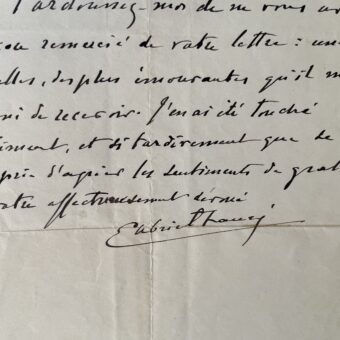 Pardonnez-moi de ne vous av
remercié de votre lettre : une
elles, des plus émouvantes qu'il m
de recevoir. J'en ai été touché
iment, et si tardivement que je
d'agréer les sentiments de grat
votre affectueusement dévoué
Gabriel Fauré